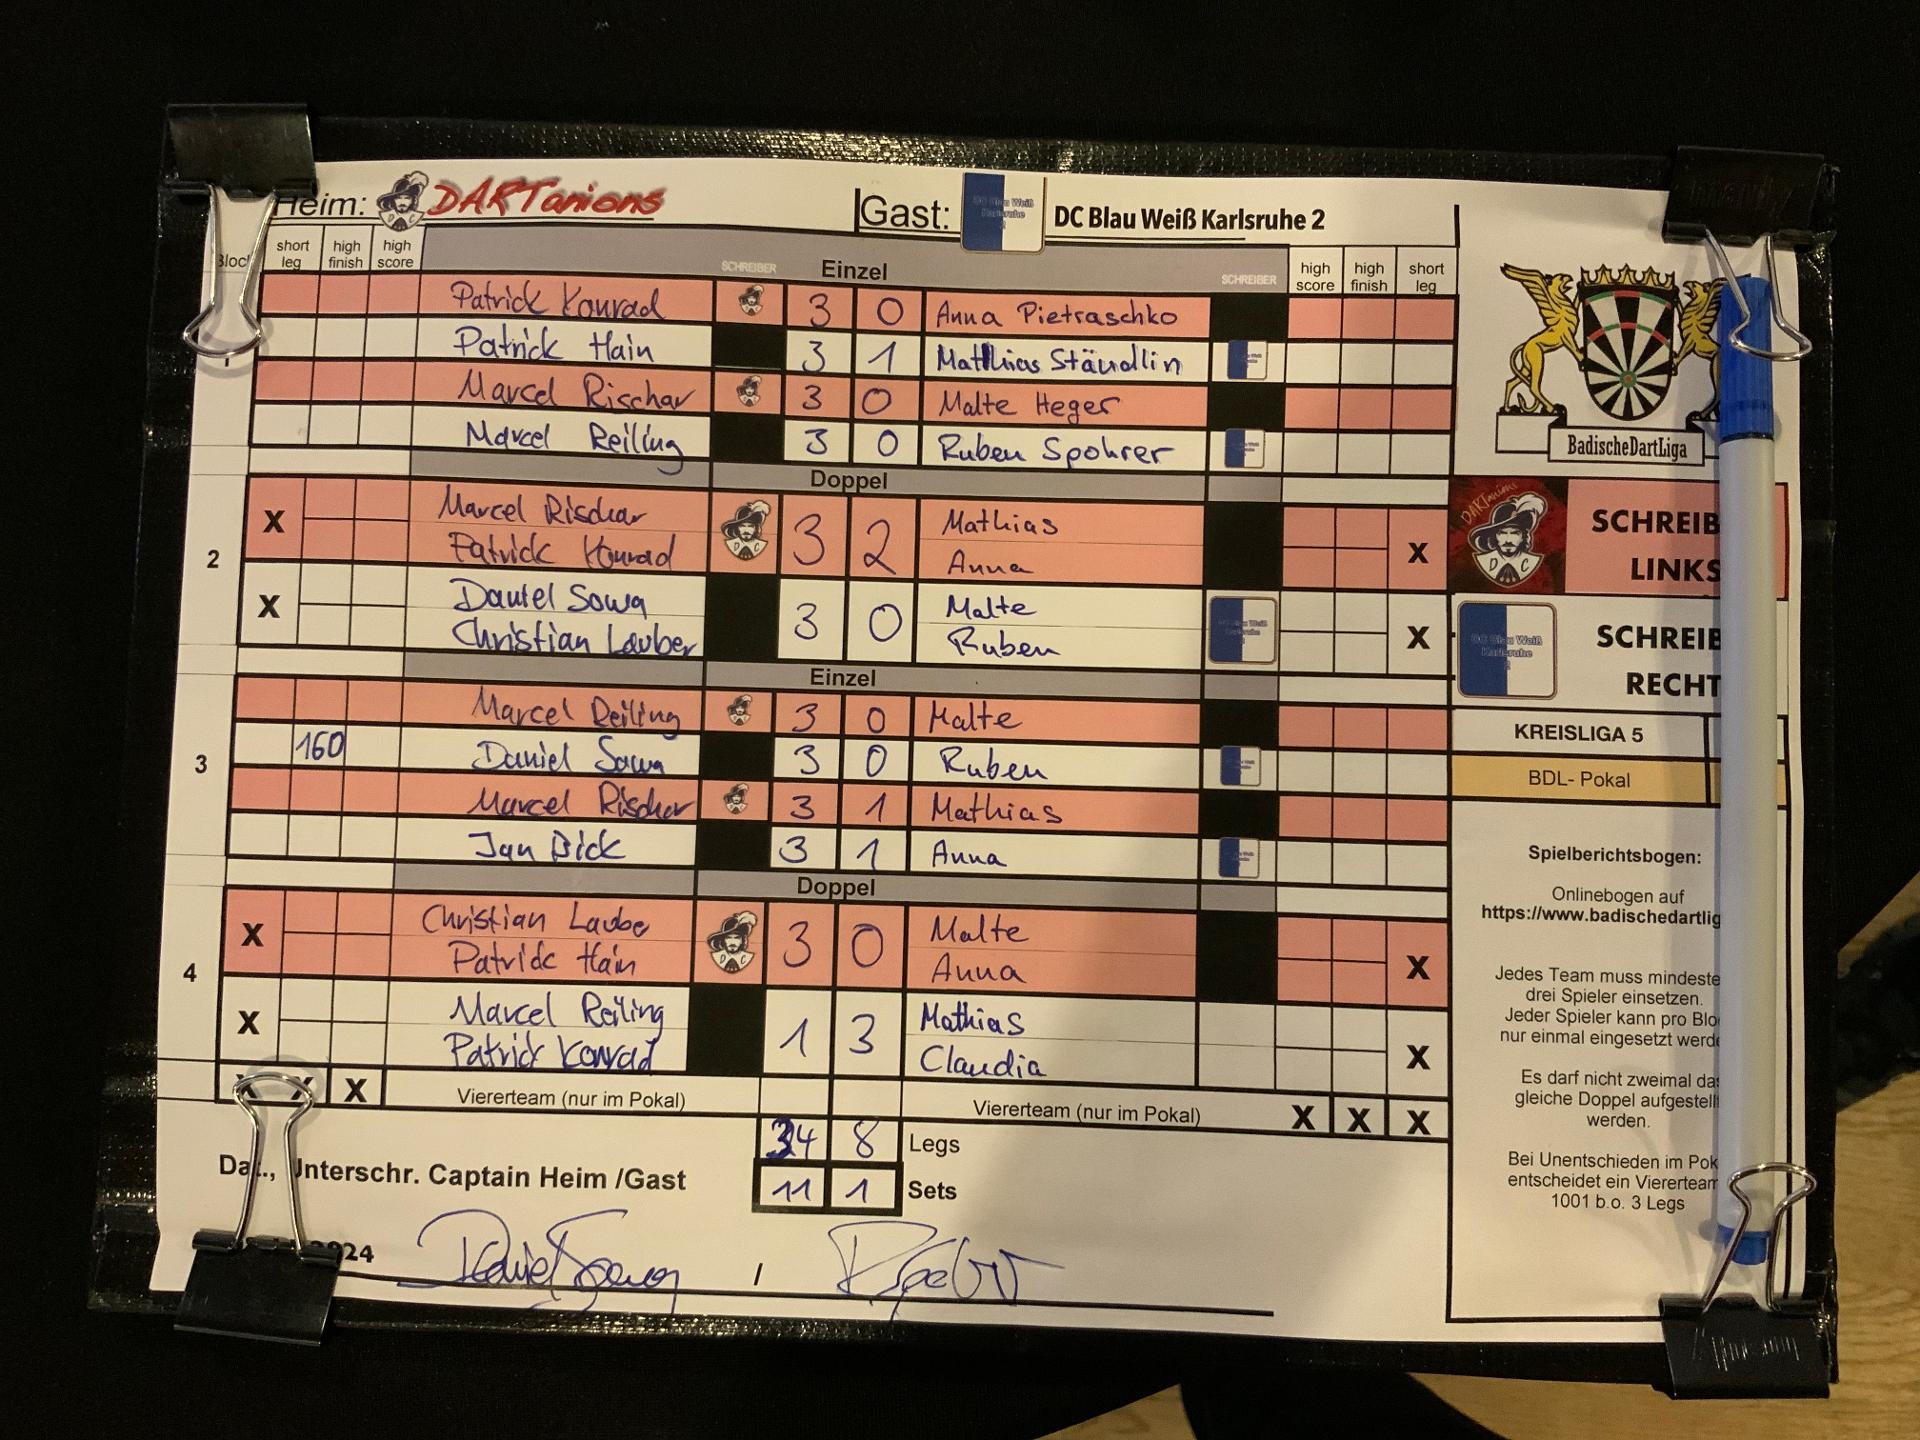 Heim: DARTanions Gast: DC Blau Weiß Karlsruhe 2
Block short leg high finish high score SCHREIBER Einzel SCHREIBER high score high finish short leg
Patrick Konrad 3 0 Anna Pietraschko
Patrick Hain 3 1 Matthias Ständlin
Marcel Rischar 3 0 Malte Heger
Marcel Reiling 3 0 Ruben Spohrer
Doppel
2
X Marcel Rischar 3 2 Mathias
Patrick Konrad Anna X
X Daniel Sowa 3 0 Malte
Christian Lauber Ruben X
Einzel
3
Marcel Reiling 3 0 Malte
160 Daniel Sowa 3 0 Ruben
Marcel Rischar 3 1 Mathias
Jan Bick 3 1 Anna
Doppel
4
X Christian Laube 3 0 Malte
Patrick Hain Anna X
X Marcel Reiling 1 3 Mathias
Patrick Konrad Claudia X
X X X Vierterteam (nur im Pokal) Viererteam (nur im Pokal) X X X
34 8 Legs
11 1 Sets
Unterschr. Captain Heim /Gast
24 /
BadischeDartLiga
DARTanions
D C
SCHREIB
LINKS
DC Blau Weiß
Karlsruhe
2
SCHREIB
RECHT
KREISLIGA 5
BDL- Pokal
Spielberichtsbogen:
Onlinebogen auf
https://www.badischedartlig
Jedes Team muss mindeste
drei Spieler einsetzen.
Jeder Spieler kann pro Blo
nur einmal eingesetzt werde
Es darf nicht zweimal da
gleiche Doppel aufgestell
werden.
Bei Unentschieden im Pok
entscheidet ein Viererteam
1001 b.o. 3 Legs